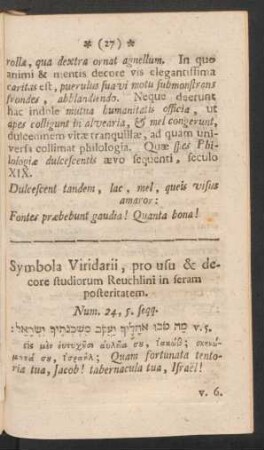 * (27) *
rollæ, qua dextra ornat agnellum. In quo
animi & mentis decore vis elegantissima
caritas est, puerulus suavi motu submonstrans
frondes, abblandiendo. Neque deerunt
hac indole mutua humanitatis officia, ut
apes colligunt in alvearia, & mel congerunt,
dulcedinem vitæ tranquillæ, ad quam uni-
versi collimat philologia. Quæ spes Phi-
lologiæ dulcescentis ævo sequenti, seculo
XIX.
Dulcescent tandem, lac, mel, queis visa
amaror:
Fontes præbebunt gaudia! Quanta bona!
Symbola Viridarii, pro usu & de-
core studiorum Reuchlini in seram
posteritatem.
Num. 24, 5. seqq.
מה טבו אהליך יעקב משכנתיך ישראל: v. 5.
Quam fortunata tento-
ria tua, Jacob! tabernacula tua, Israël!
v. 6.